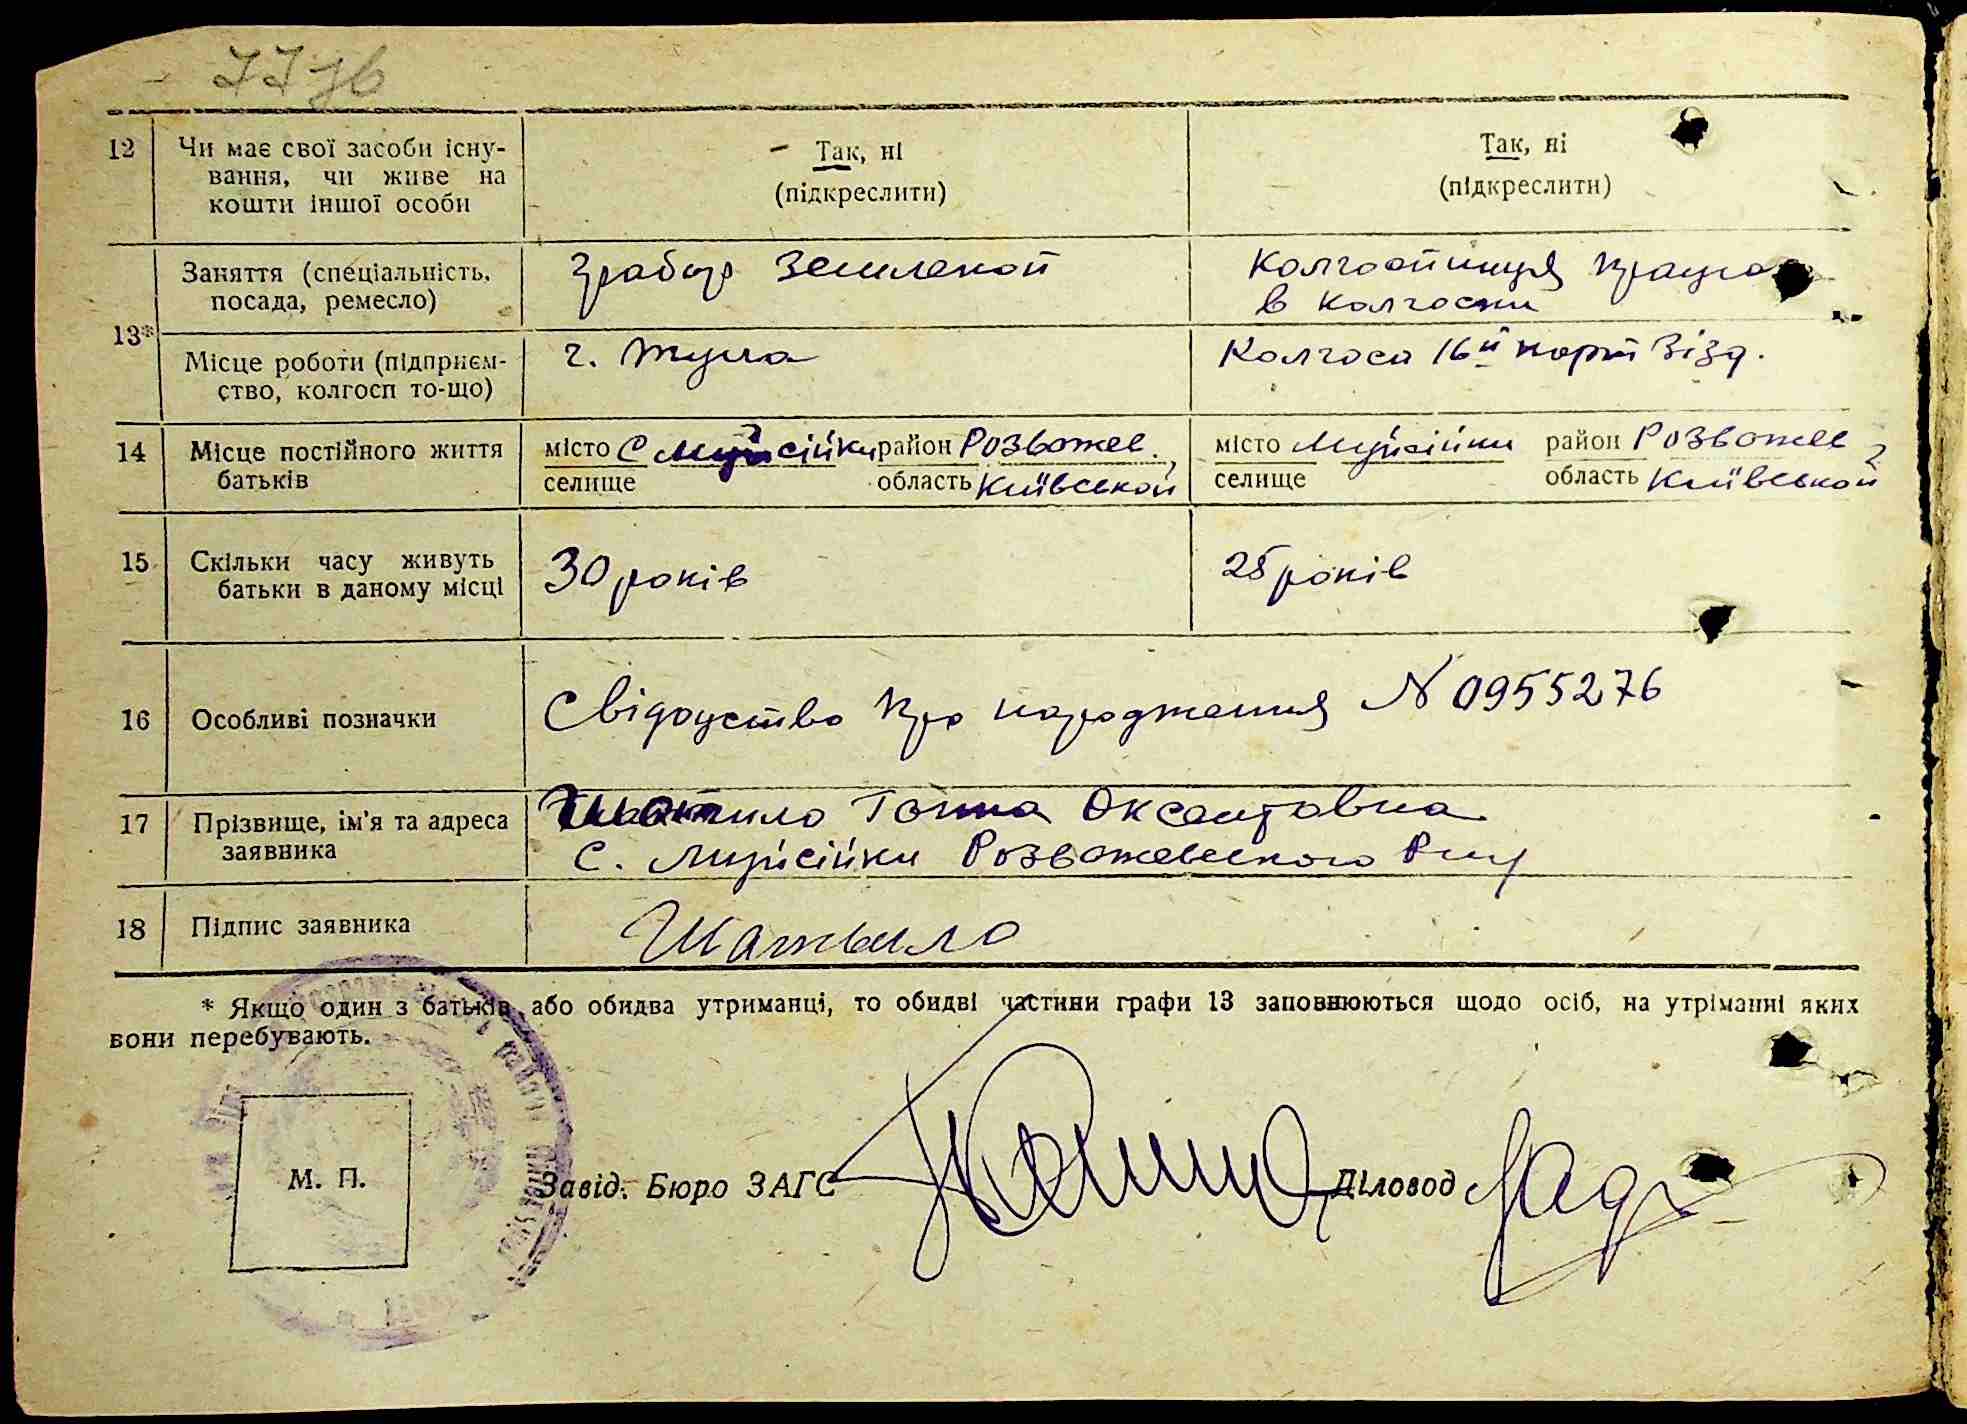 12 Чи має свої засоби існу-
вання, чи живе на
кошти іншої особи
Так, ні
(підкреслити)
Так, ні
(підкреслити)
13*
Заняття (спеціальність,
посада, ремесло)
Грабар Земилекоп
Колгоспниця працює
в колгоспи
Місце роботи (підприєм-
ство, колгосп то-що)
г. Тула
Колгосп 16й парт Зізд.
14 Місце постійного життя
батьків
місто С Мусійки район Розважев.
селище область Київської
місто Мусійки район Розважев
селище область Київської
15 Скільки часу живуть
батьки в даному місці
30 років
25 років
16 Особливі позначки
Свідоцтво про народження N 0955276
17 Прізвище, ім'я та адреса
заявника
Ганна Оксентовна
С. Мусійки Розважевського р-ну
18 Підпис заявника
Шатило
* Якщо один з батьків або обидва утриманці, то обидві частини графи 13 заповнюються щодо осіб, на утріманні яких
вони перебувають.
М. П.
Завід. Бюро ЗАГС
Діловод